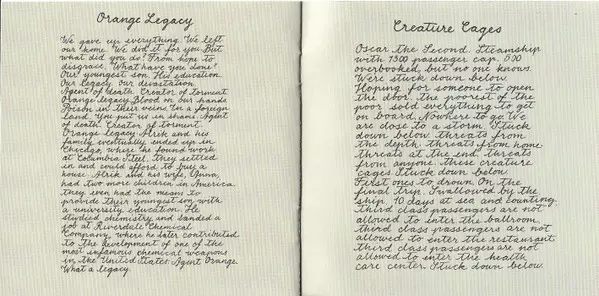 Orange Legacy
We gave up everything We left
our home. We did it for you. But
what did you do? From hope to
disgrace. What have you done?
Our youngest son. His education.
Our legacy, our devastation.
Agent of death. Creator of torment
Orange legacy. Blood on our hands
Poison in their veins. In a foreign
land. You put us in shame. Agent
of death. Creator of torment.
Orange legacy. Alrik and his
family eventually ended up in
Chicago, where he found work
at Columbia Steel. They settled
in and could afford to buy a
house. Alrik and his wife, Anna,
had two more children in America
they even had the means to
provide their youngest son with
a university education. He
studied chemistry and landed a
job at Riverdale Chemical
Company, where he later contributed
to the development of one of the
most infamous chemical weapons
in the United States: Agent Orange.
What a legacy.
Creature Cages
Oscar the Second. Steamship
with 1500 passenger cap. 500
overbooked, but no one knows.
We're stuck down below.
Hoping for someone to open
the door. The poorest of the
poor sold everything to get
on board. Nowhere to go. We
are close to a storm. Stuck
down below threats from
the depth, threats from home
threats at the end, threats
from anyone. These creature
cages. Stuck down below.
First ones to drown. On the
final trip. Swallowed by the
ship. 40 days at sea and counting.
third class passengers are not
allowed to enter the ballroom.
third class passengers are not
allowed to enter the restaurant
third class passengers are not
allowed to enter the health
care center. Stuck down below.